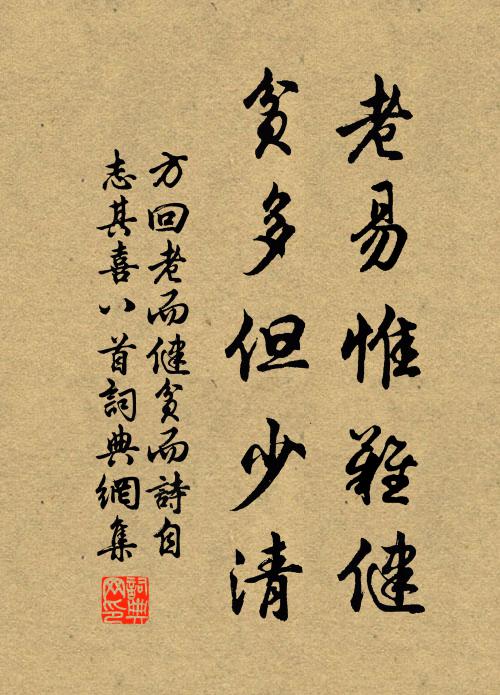 老易惟難健
貧多但少清
方回老而健貧而詩自
志其喜八首詞典網集
詞典網印